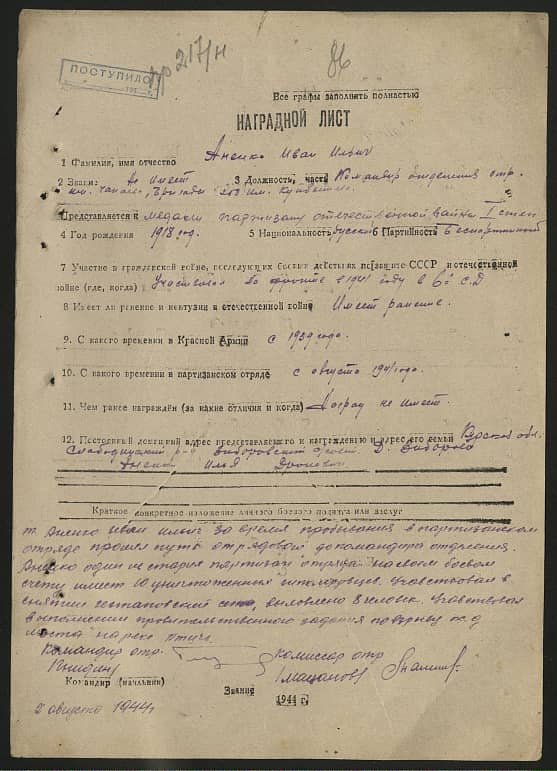 217/н
86
ПОСТУПИЛО
Все графы заполнять полностью
НАГРАДНОЙ ЛИСТ
1 Фамилия, имя отчество Аненко Иван Ильич
2 Звание Не имеет 3 Должность, часть Командир отделения отр.
им. Чапаева, бригады
Представляется к медали партизану отечественной войны I степ
4 Год рождения 1918 год. 5 Национальность русский 6 Партийность Беспартийный
7 Участие в гражданской войне, последующих боевых действиях по защите СССР и отечественной
войне (где, когда) Участвовал на фронте с 1941 году в 6й С.Д
8 Имеет ли ранение и контузии в отечественной войне Имеет ранение.
9. С какого времении в Красной Армии с 1939 года.
10. С какого времении в партизанском отряде с августа 1941 года.
11. Чем ранее награждён (за какие отличия и когда) Наград не имеет.
12. Постоянный домашний адрес представляемого к награждению и адрес его семьи обл.
Аненко Илья
Краткое конкретное изложение личного боевого подвига или заслуг
т. Аненко Иван Ильич за время пребывания в партизанском
отряде прошел путь от рядовой до командира отделения.
Аненко один из старых партизан отряда. На своем боевом
счету имеет 10 уничтоженных гитлеровцев. Участвовал в
снятии гестаповской выловлено 8 человек. Участвовал
в выполнении правительственного задания по взрыву ж.д
моста на реке Птичь.
Командир отр. Комиссар отр
Командир (начальник)
Звание
1944 г.
2 августа 1944г